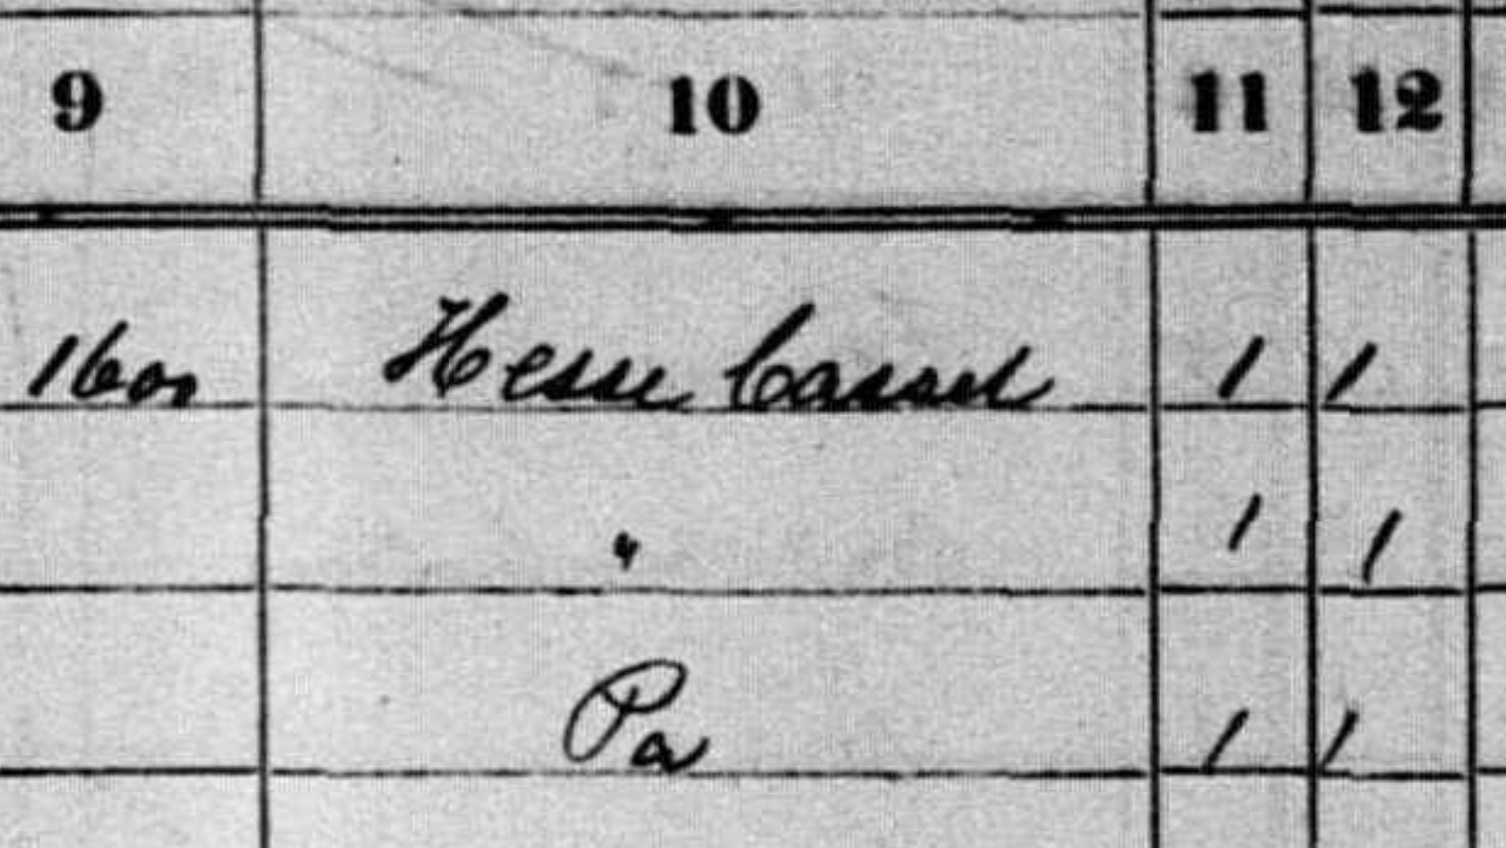 9 10 11 12
1600 Hesse Cassel 1 1
" 1 1
Pa 1 1